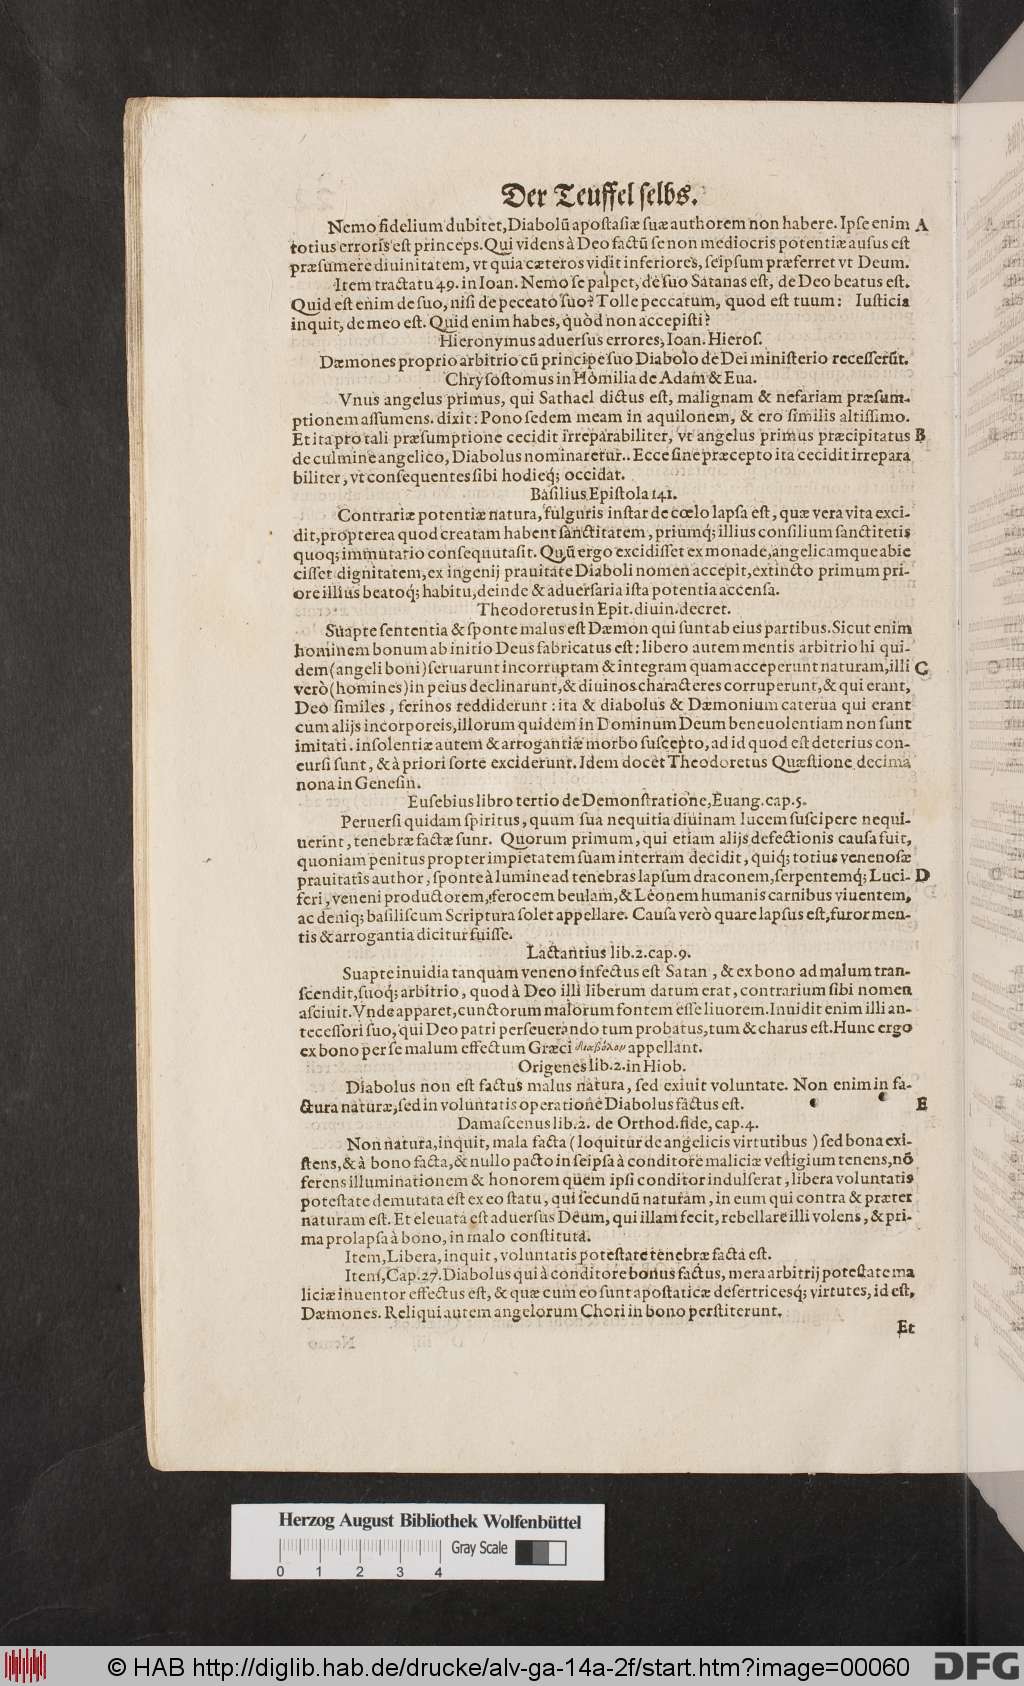 Der Teuffel ſelbs.
Nemo fidelium dubitet, Diabolū apoſtaſiæ ſuæ authorem non habere. Ipſe enim A
totius erroris eſt princeps. Qui videns à Deo factū ſe non mediocris potentiæ auſus eſt
præſumere diuinitatem, vt quia cæteros vidit inferiores, ſeipſum præferret vt Deum.
Item tractatu 49. in Ioan. Nemo ſe palpet, de ſuo Satanas eſt, de Deo beatus eſt.
Quid eſt enim de ſuo, niſi de peccato ſuo? Tolle peccatum, quod eſt tuum: Iuſticia
inquit, de meo eſt. Quid enim habes, quòd non accepiſti?
Hieronymus aduerſus errores, Ioan. Hieroſ.
Dæmones proprio arbitrio cū principe ſuo Diabolo de Dei miniſterio receſſerūt.
Chryſoſtomus in Homilia de Adam & Eua.
Vnus angelus primus, qui Sathael dictus eſt, malignam & nefariam præſum-
ptionem aſſumens. dixit: Pono ſedem meam in aquilonem, & ero ſimilis altiſſimo.
Et ita pro tali præſumptione cecidit irreparabiliter, vt angelus primus præcipitatus B
de culmine angelico, Diabolus nominaretur. Ecce ſine præcepto ita cecidit irrepara
biliter, vt conſequentes ſibi hodieq́; occidat.
Baſilius Epiſtola 141.
Contrariæ potentiæ natura, fulguris inſtar de cœlo lapſa eſt, quæ vera vita exci-
dit, propterea quod creatam habent ſanctitatem, priumq́; illius conſilium ſanctitetis
quoq; immutatio conſequuta ſit. Quū ergo excidiſſet ex monade, angelicamque abie
ciſſet dignitatem, ex ingenij prauitate Diaboli nomen accepit, extincto primum pri-
ore illius beatoq́; habitu, deinde & aduerſaria iſta potentia accenſa.
Theodoretus in Epit. diuin. decret.
Suapte ſententia & ſponte malus eſt Dæmon qui ſunt ab eius partibus. Sicut enim
hominem bonum ab initio Deus fabricatus eſt: libero autem mentis arbitrio hi qui-
dem (angeli boni) ſeruarunt incorruptam & integram quam acceperunt naturam, illi C
verò (homines) in peius declinarunt, & diuinos characteres corruperunt, & qui erant,
Deo ſimiles, ferinos reddiderunt: ita & diabolus & Dæmonium caterua qui erant
cum alijs incorporeis, illorum quidem in Dominum Deum beneuolentiam non ſunt
imitati. inſolentiæ autem & arrogantiæ morbo ſuſcepto, ad id quod eſt deterius con-
curſi ſunt, & à priori ſorte exciderunt. Idem docet Theodoretus Quæſtione decima
nona in Geneſin.
Euſebius libro tertio de Demonſtratione, Euang. cap. 5.
Peruerſi quidam ſpiritus, quum ſua nequitia diuinam lucem ſuſcipere nequi-
uerint, tenebræ factæ ſunt. Quorum primum, qui etiam alijs defectionis cauſa fuit,
quoniam penitus propter impietatem ſuam in terram decidit, quiq́; totius venenoſæ
prauitatis author, ſponte à lumine ad tenebras lapſum draconem, ſerpentemq́; Luci- D
feri, veneni productorem, ferocem beulam, & Leonem humanis carnibus viuentem,
ac deniq; baſiliſcum Scriptura ſolet appellare. Cauſa verò quare lapſus eſt, furor men-
tis & arrogantia dicitur fuiſſe.
Lactantius lib. 2. cap. 9.
Suapte inuidia tanquam veneno infectus eſt Satan, & ex bono ad malum tran-
ſcendit, ſuoq́; arbitrio, quod à Deo illi liberum datum erat, contrarium ſibi nomen
aſciuit. Vnde apparet, cunctorum malorum fontem eſſe liuorem. Inuidit enim illi an-
teceſſori ſuo, qui Deo patri perſeuerando tum probatus, tum & charus eſt. Hunc ergo
ex bono per ſe malum effectum Græci διάβολον appellant.
Origenes lib. 2. in Hiob.
Diabolus non eſt factus malus natura, ſed exiuit voluntate. Non enim in fa-
ctura naturæ, ſed in voluntatis operatione Diabolus factus eſt. E
Damaſcenus lib. 2. de Orthod. fide, cap. 4.
Non natura, inquit, mala facta (loquitur de angelicis virtutibus) ſed bona exi-
ſtens, & à bono facta, & nullo pacto in ſeipſa à conditore maliciæ veſtigium tenens, nō
ferens illuminationem & honorem quem ipſi conditor indulſerat, libera voluntatis
poteſtate demutata eſt ex eo ſtatu, qui ſecundū naturam, in eum qui contra & præter
naturam eſt. Et eleuata eſt aduerſus Deum, qui illam fecit, rebellare illi volens, & pri-
ma prolapſa à bono, in malo conſtituta.
Item, Libera, inquit, voluntatis poteſtate tenebræ facta eſt.
Item, Cap. 27. Diabolus qui à conditore bonus factus, mera arbitrij poteſtate ma
liciæ inuentor effectus eſt, & quæ cum eo ſunt apoſtaticæ deſertricesq́; virtutes, id eſt,
Dæmones. Reliqui autem angelorum Chori in bono perſtiterunt.
Et
Herzog August Bibliothek Wolfenbüttel
Gray Scale
0 1 2 3 4
© HAB http://diglib.hab.de/drucke/alv-ga-14a-2f/start.htm?image=00060
DFG